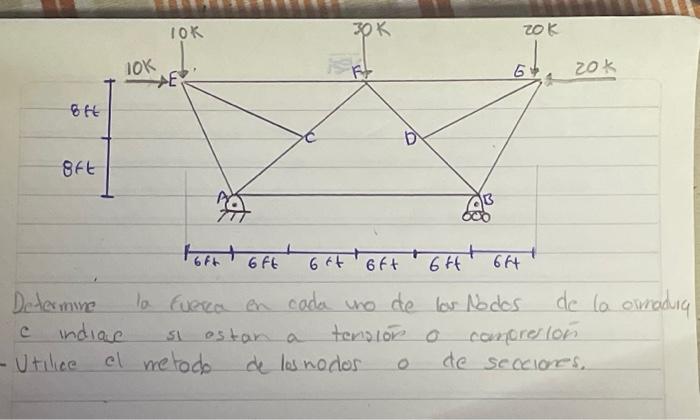 10K 30K 20K
10K E F G 20K
8ft
C D
8ft
A B
6ft 6ft 6ft 6ft 6ft 6ft
Determine la fuerza en cada uno de los Nodos de la armadura
e indiqe si estan a tensión o compresión
- Utilice el metodo de los nodos o de secciones.